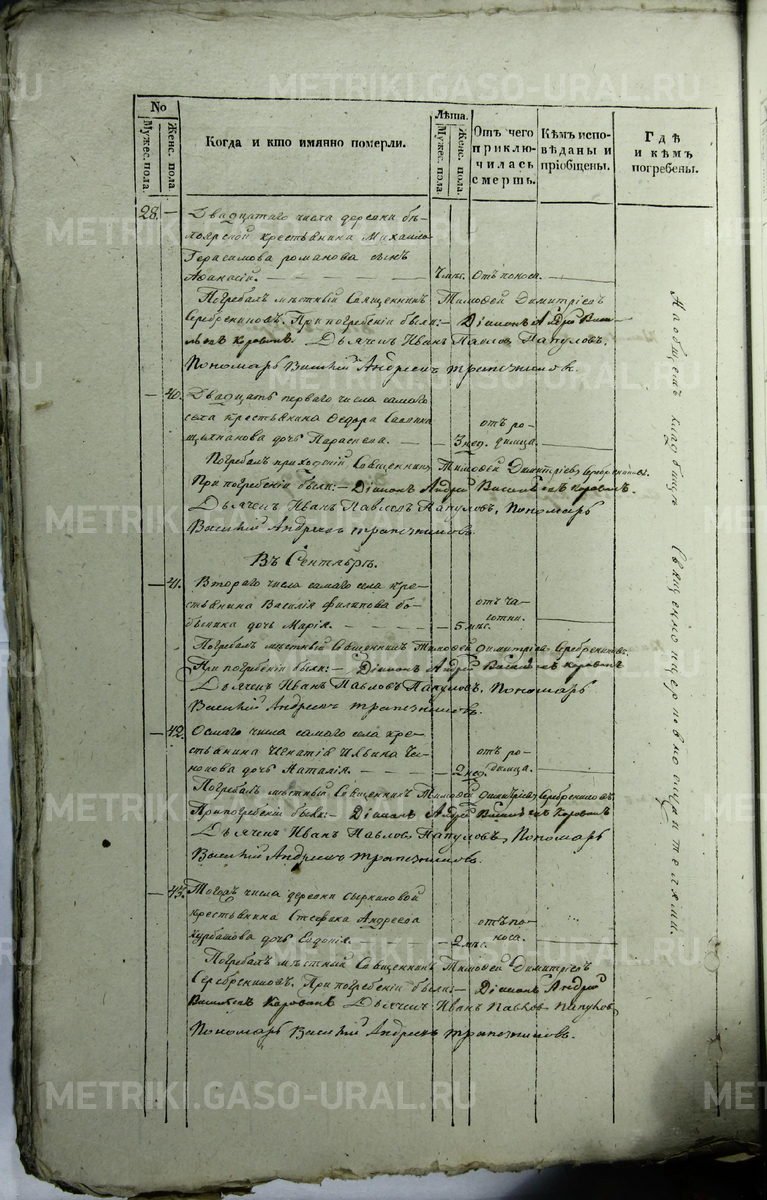 No
Мужес. пола.
Женс. пола.
Когда и кто имянно померли.
Лѣта.
Мужес. пола.
Женс. пола.
Отъ чего приключилась смерть.
Кѣмъ исповѣданы и пріобщены.
Гдѣ и кѣмъ погребены.
28. Двадцатаго числа деревни бѣ-
лоярской крестьянина Михаила
Герасимова романова сынъ
Афанасій. мѣс. Отъ поноса.
Погребалъ мѣстный Священникъ Тимофей Димитріевъ
Серебренниковъ. При погребеніи были:- Діаконъ Андрей Васи-
льевъ Коровинъ. Дьячекъ Иванъ Павловъ Папуловъ.
Пономарь Василій Андреевъ трапезниковъ.
40. Двадцать перваго числа самаго
села крестьянина Федора
дочь Параскева. 3 нед. отъ ро-
димца.
Погребалъ приходскій Священникъ Тимофей Димитріевъ Серебренниковъ.
При погребеніи были:- Діаконъ Андрей Васильевъ Коровинъ.
Дьячекъ Иванъ Павловъ Папуловъ, Пономарь
Василій Андреевъ трапезниковъ.
Въ Сентябрѣ.
41. Втораго числа самаго села кре-
стьянина Василія филипова бо-
былкина дочь Марія. 5 мѣс. отъ ча-
хотки.
Погребалъ мѣстный Священникъ Тимофей Димитріевъ Серебренниковъ.
При погребеніи были:- Діаконъ Андрей Васильевъ Коровинъ
Дьячекъ Иванъ Павловъ Папуловъ, Пономарь
Василій Андреевъ трапезниковъ.
42. Осмаго числа самаго села кре-
стьянина Игнатія Ильина
дочь Наталія. 2 нед. отъ ро-
димца.
Погребалъ мѣстный Священникъ Тимофей Димитріевъ Серебренниковъ.
При погребеніи были:- Діаконъ Андрей Васильевъ Коровинъ
Дьячекъ Иванъ Павловъ Папуловъ, Пономарь
Василій Андреевъ трапезниковъ.
43. Тогожъ числа деревни сыркиновой
крестьянина Стефана Андреева
Курбатова дочь Евдокія. 2 мѣс. отъ по-
носа.
Погребалъ мѣстный Священникъ Тимофей Димитріевъ
Серебренниковъ. При погребеніи были:- Діаконъ Андрей
Васильевъ Коровинъ Дьячекъ Иванъ Павловъ Папуловъ,
Пономарь Василій Андреевъ трапезниковъ.
На общемъ кладбищѣ Священно и церковнослужителями.
METRIKI.GASO-URAL.RU